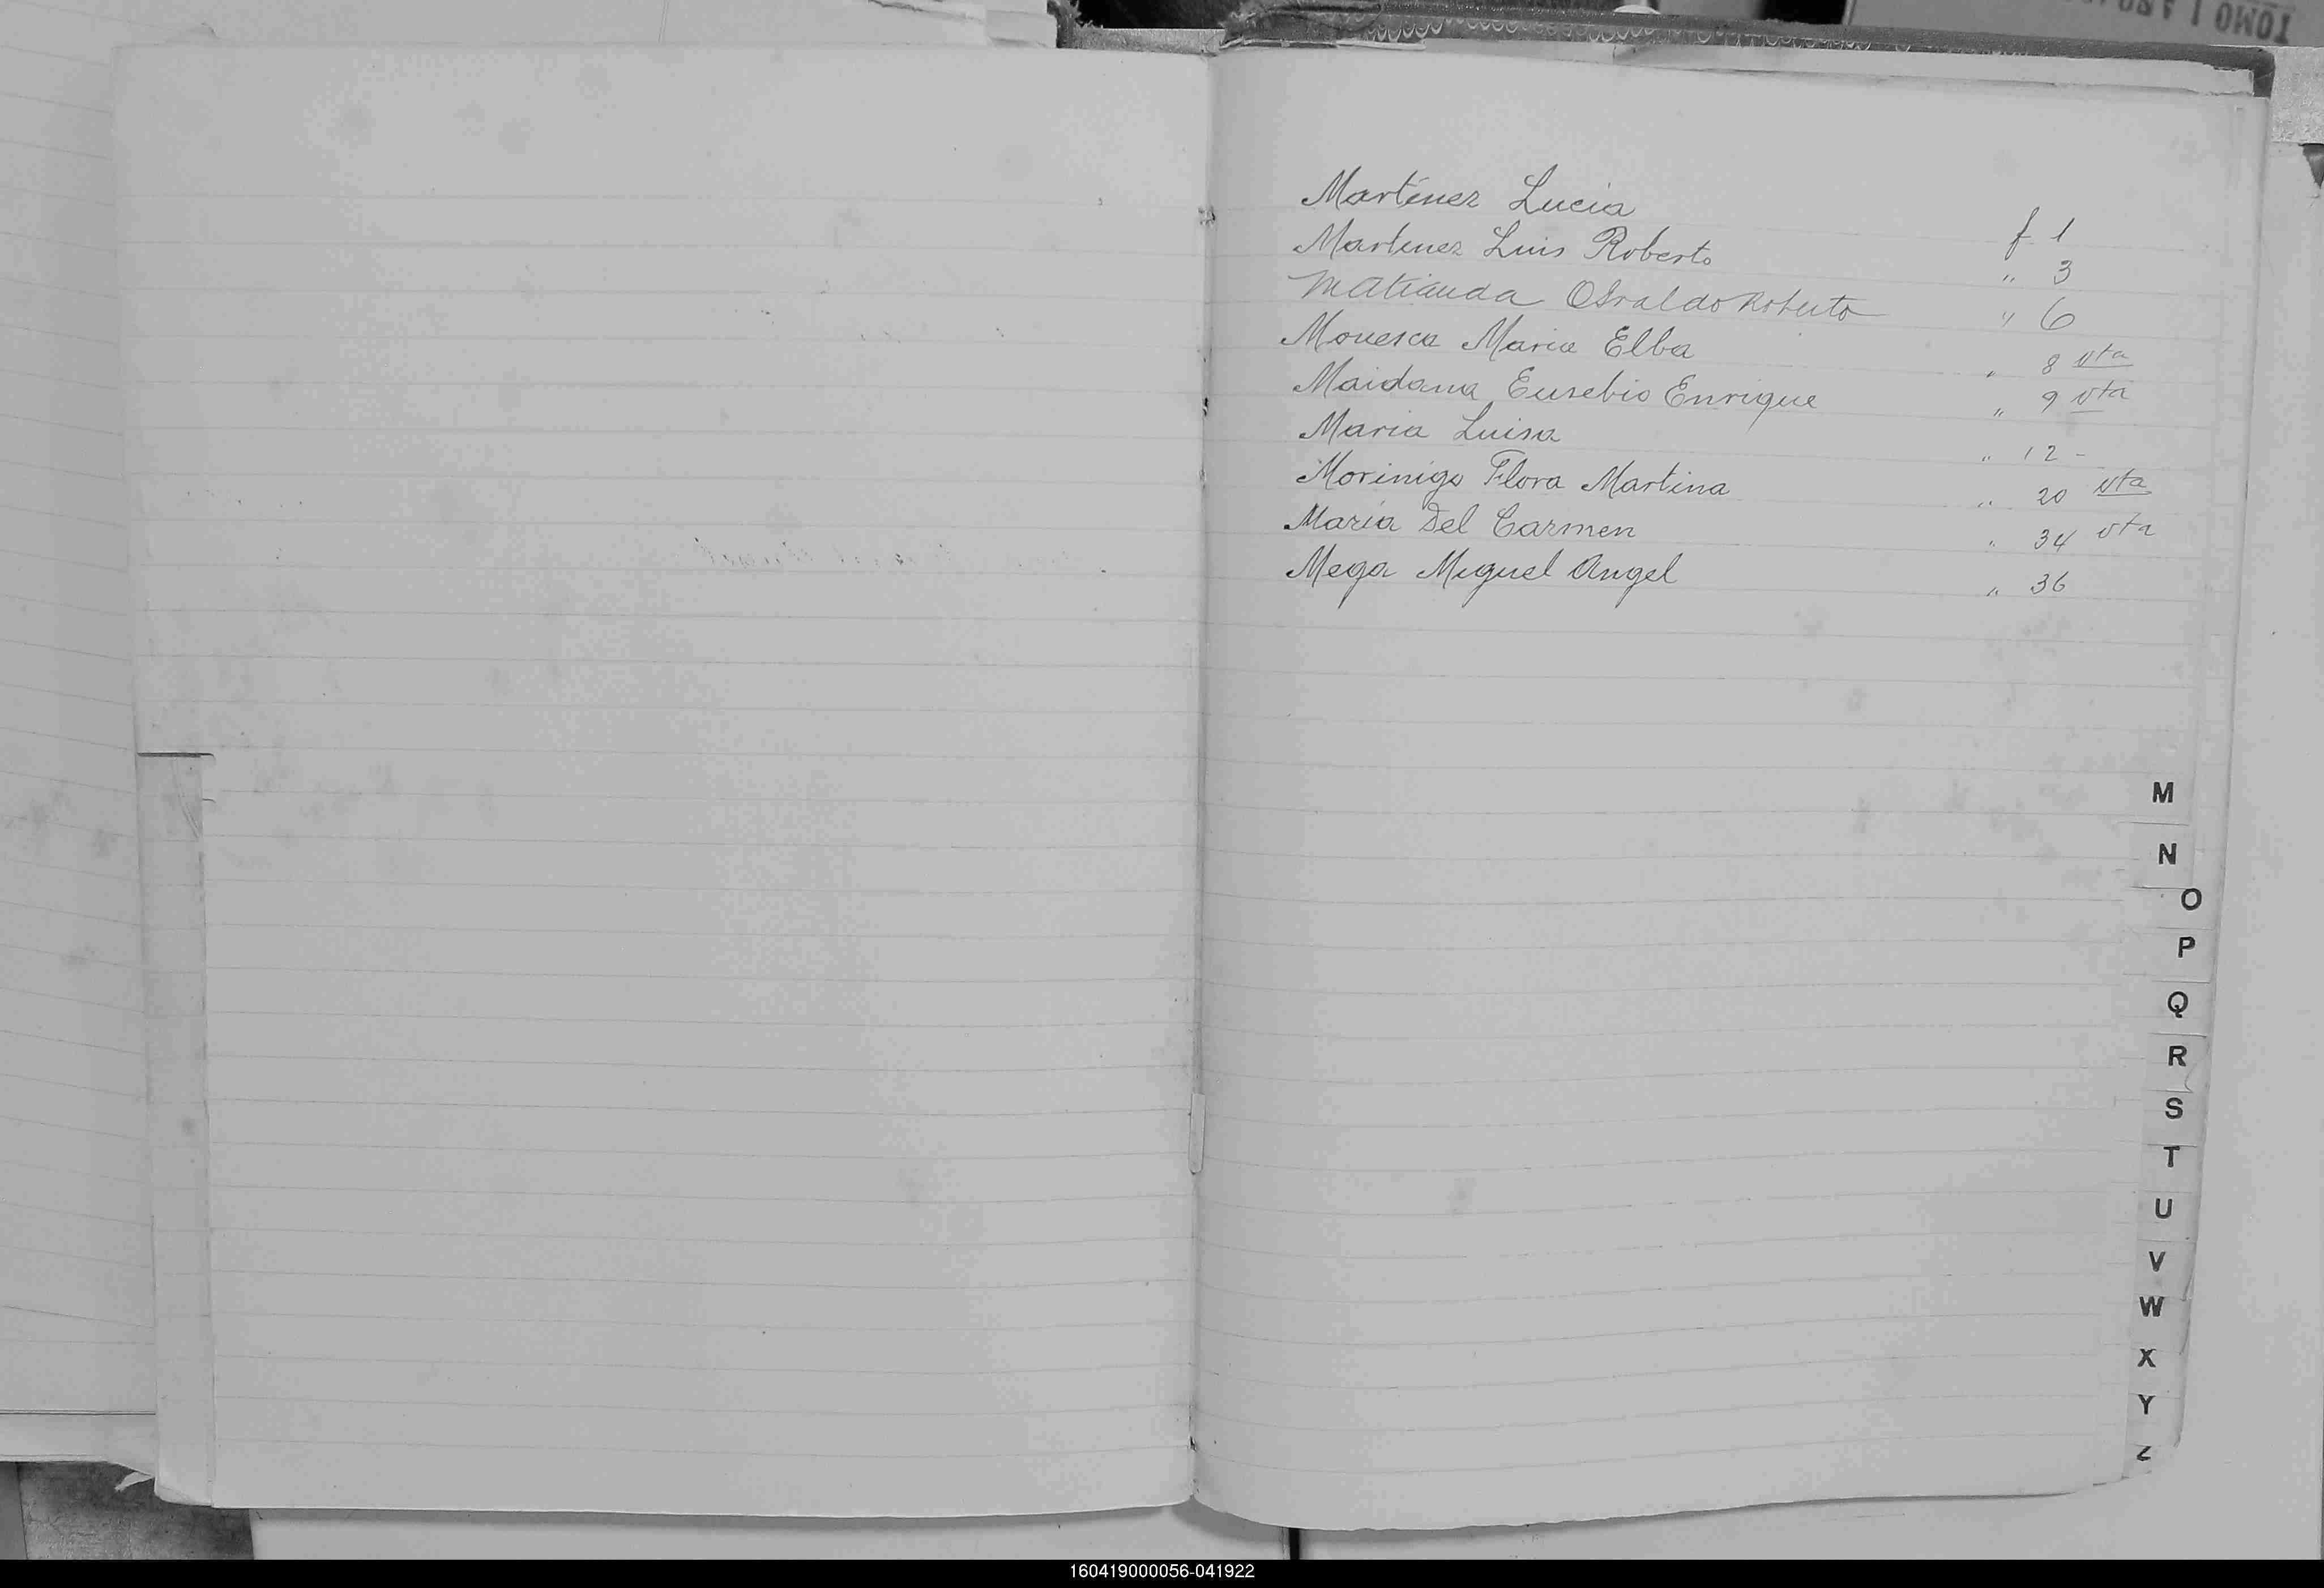 TOMO I
Martínez Lucia f 1
Martinez Luis Roberto " 3
Matianda Osvaldo Roberto " 6
Monesca Maria Elba " 8 vta
Maidana Eusebio Enrique " 9 vta
Maria Luisa " 12 -
Morinigo Flora Martina " 20 vta
María Del Carmen " 34 vta
Mega Miguel Angel " 36
M
N
O
P
Q
R
S
T
U
V
W
X
Y
Z
160419000056-041922